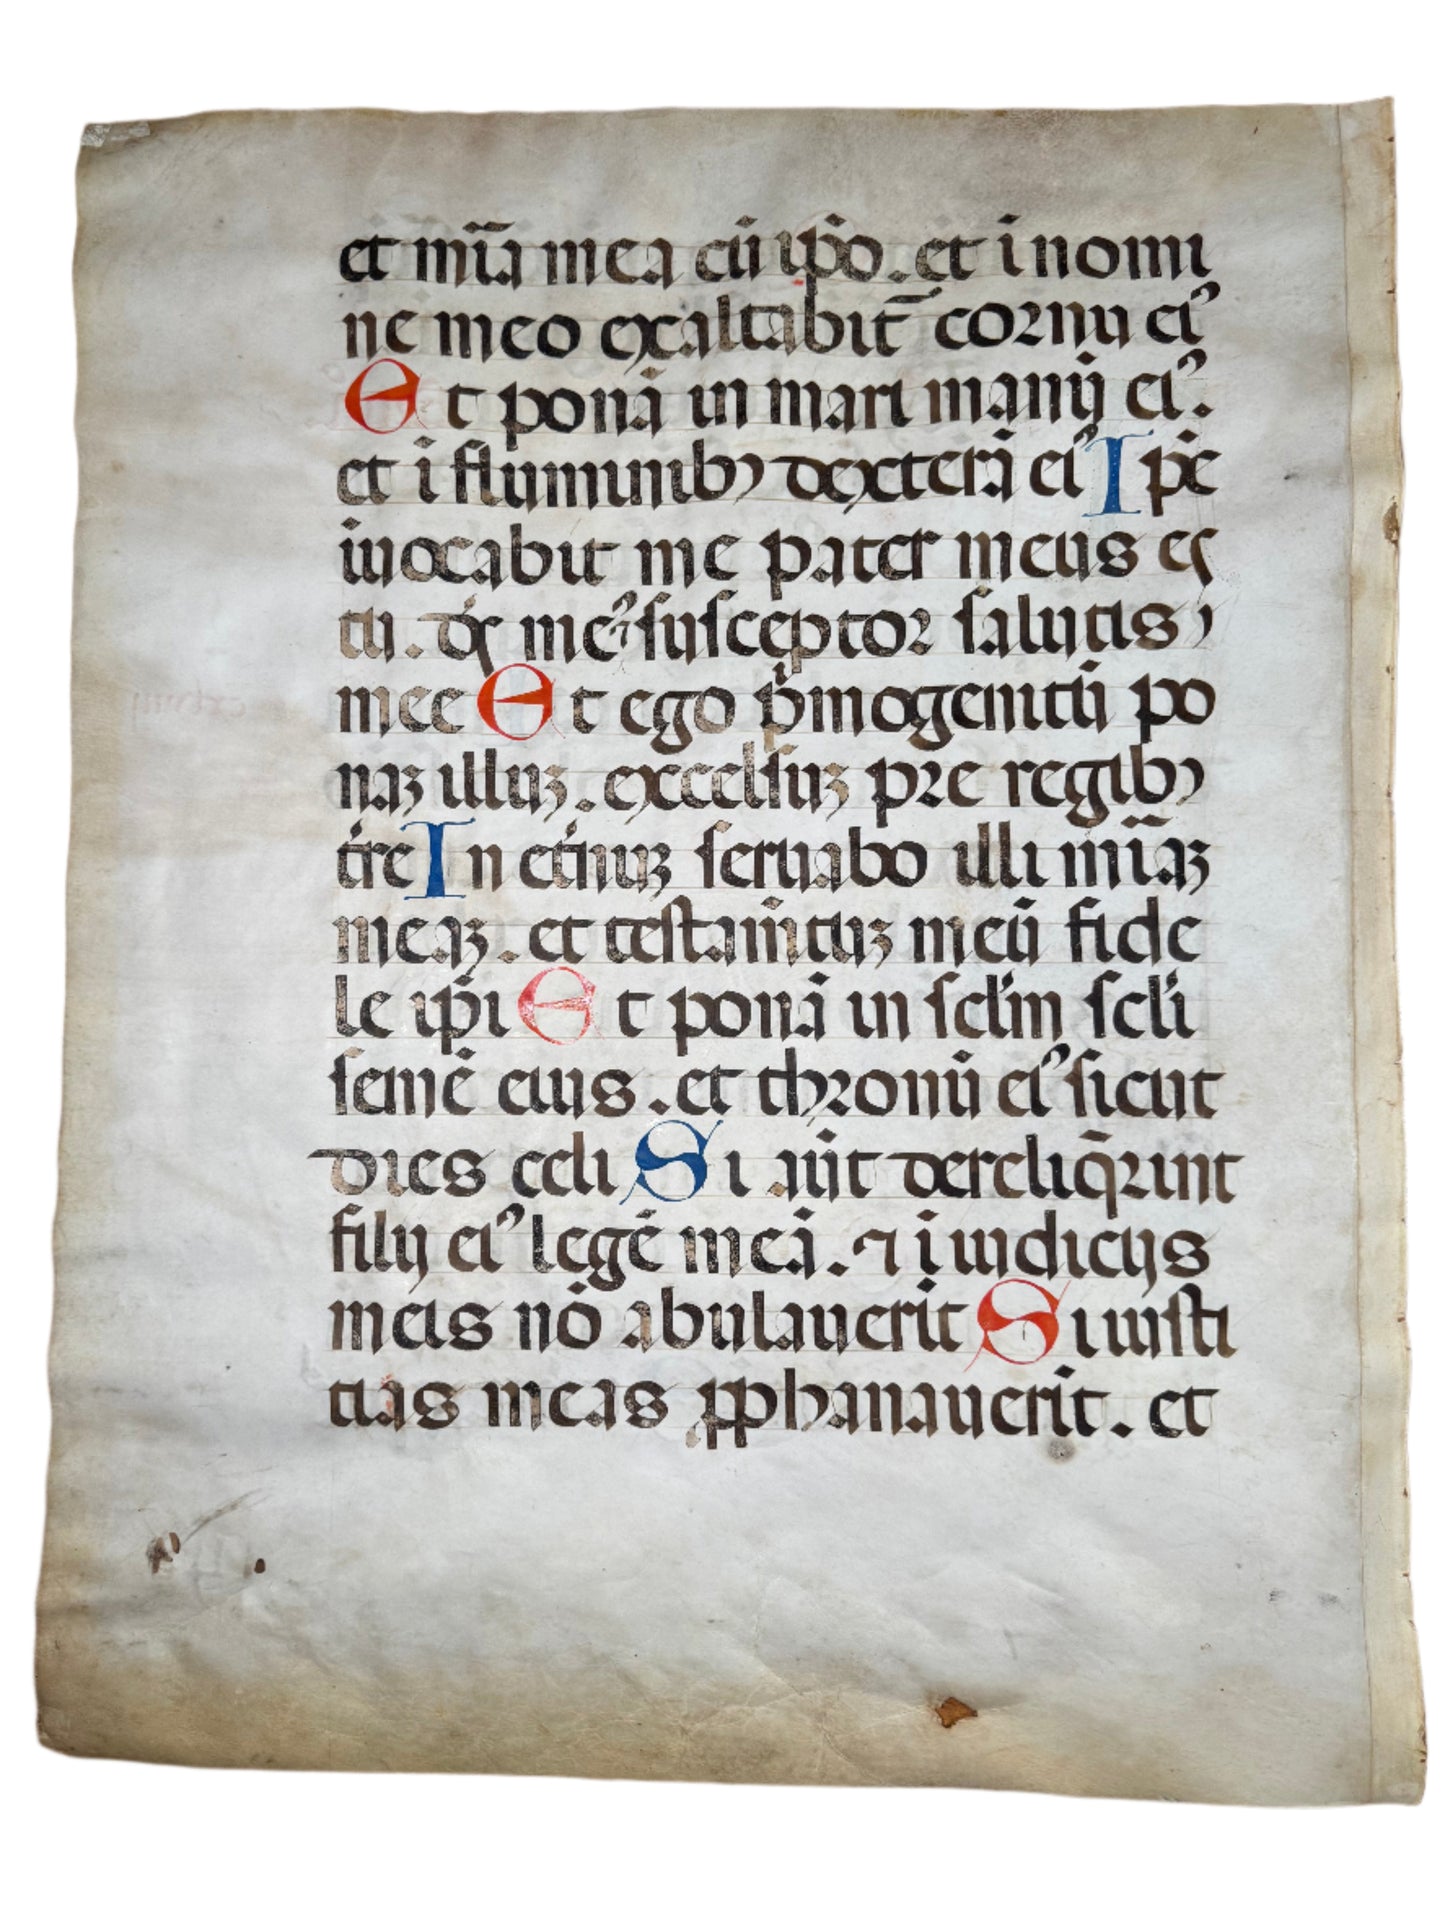 et mīa mea cū ip̄o. et i nomi
ne meo exaltabit̄ cornu ei⁹
Et ponā in mari manū ei⁹.
et ī fluminibꝫ dexterā ei⁹ Ip̄e
inocabit me pater meus es
tu. ds̄ me⁹ suſceptor ſalutis
mee Et ego p̄mogenitū po
naꝫ illuꝫ. excelſuꝫ pre regibꝫ
t̄re In et̄nuꝫ ſeruabo illi mīaꝫ
meaꝫ. et teſtam̄tuꝫ meū fide
le ip̄i Et ponā in ſcl̄m ſcl̄i
ſemē eius. et thronū ei⁹ ſicut
dies celi Si aūt dereliq̄rint
filij ei⁹ legē meā. ⁊ ī iudicijs
meis nō abulauerīt Si iuſti
tias meas ꝓphanauerīt. et